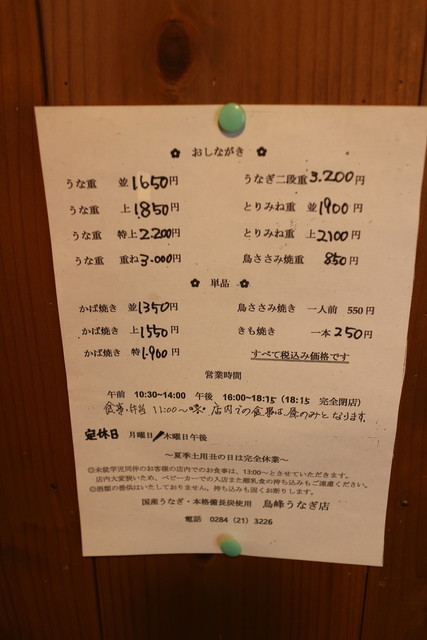 ✿ おしながき ✿
うな重 並 1650円
うな重 上 1850円
うな重 特上 2.200円
うな重 重ね 3.000円
うなぎ二段重 3.200円
とりみね重 並 1900円
とりみね重 上 2100円
鳥ささみ焼重 850円
✿ 単品 ✿
かば焼き 並 1350円
かば焼き 上 1550円
かば焼き 特 1.900円
鳥ささみ焼き 一人前 550円
きも焼き 一本 250円
すべて税込み価格です
営業時間
午前 10:30~14:00 午後 16:00~18:15 (18:15 完全閉店)
食事・弁当 11:00~ 店内での食事は昼のみとなります
定休日 月曜日 木曜日午後
~夏季土用丑の日は完全休業~
◎未就学児同伴のお客様の店内でのお食事は、13:00~とさせていただきます。
店内大変狭いため、ベビーカーでの入店また離乳食の持ち込みもご遠慮ください。
◎酒類の提供はいたしておりません、持ち込みも固くお断りします。
国産うなぎ・本格備長炭使用 鳥峰うなぎ店
電話 0284(21)3226